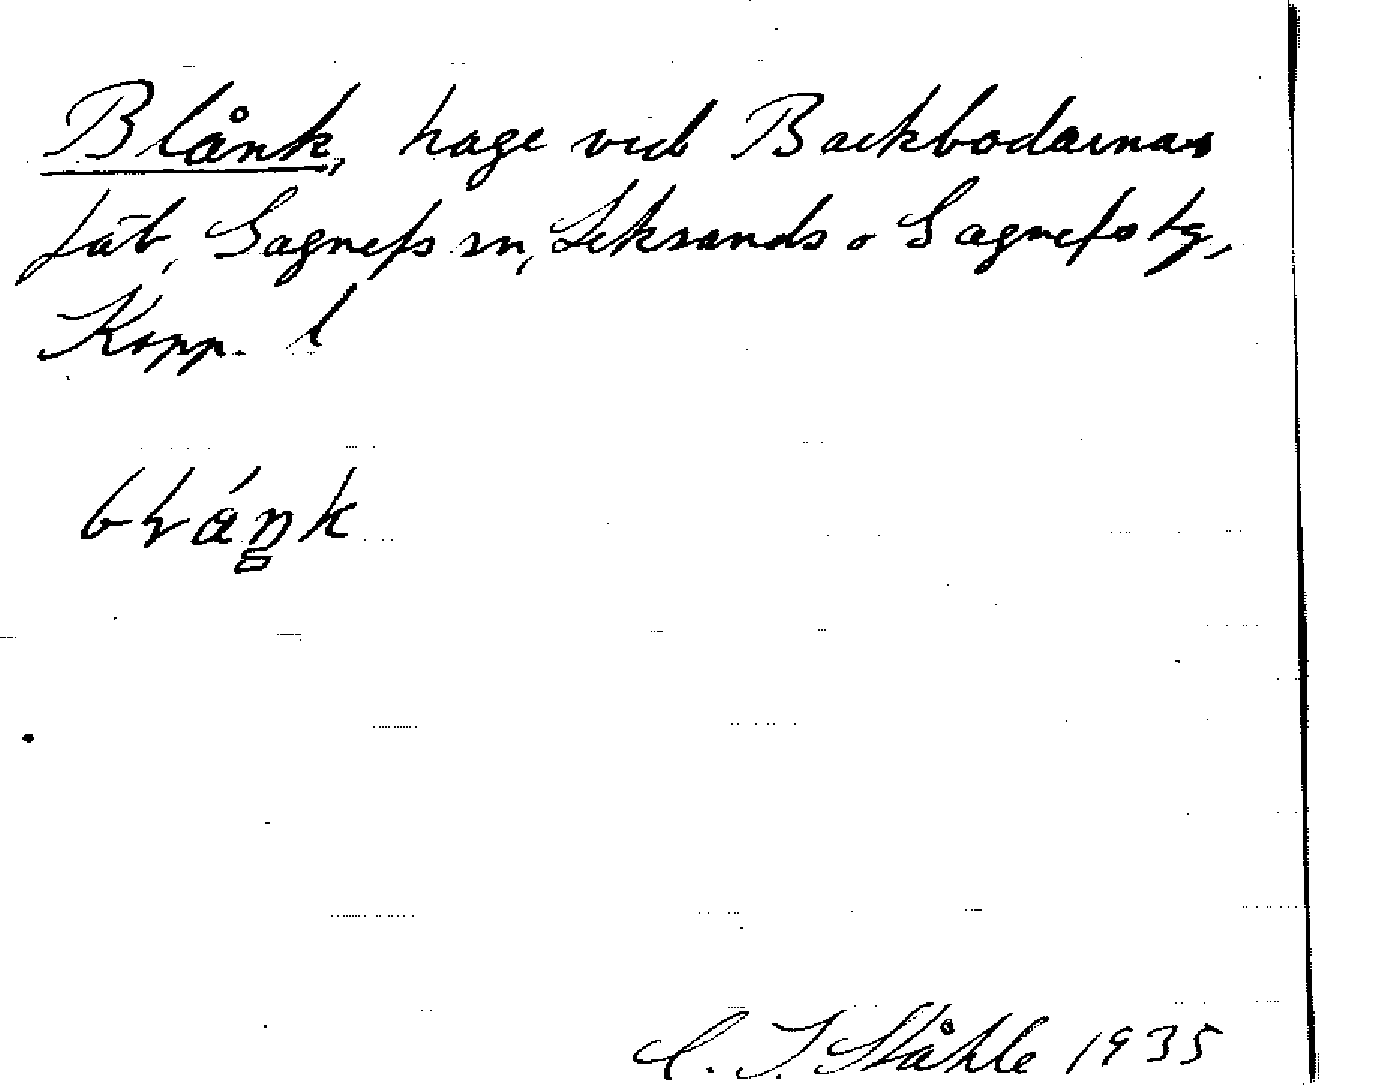 Blånk, hage vid Backbodarnas
fäb., Gagnefs sn, Leksands o Gagnefs tg,
Kopp. l
blánk
C. I. Ståhle 1935